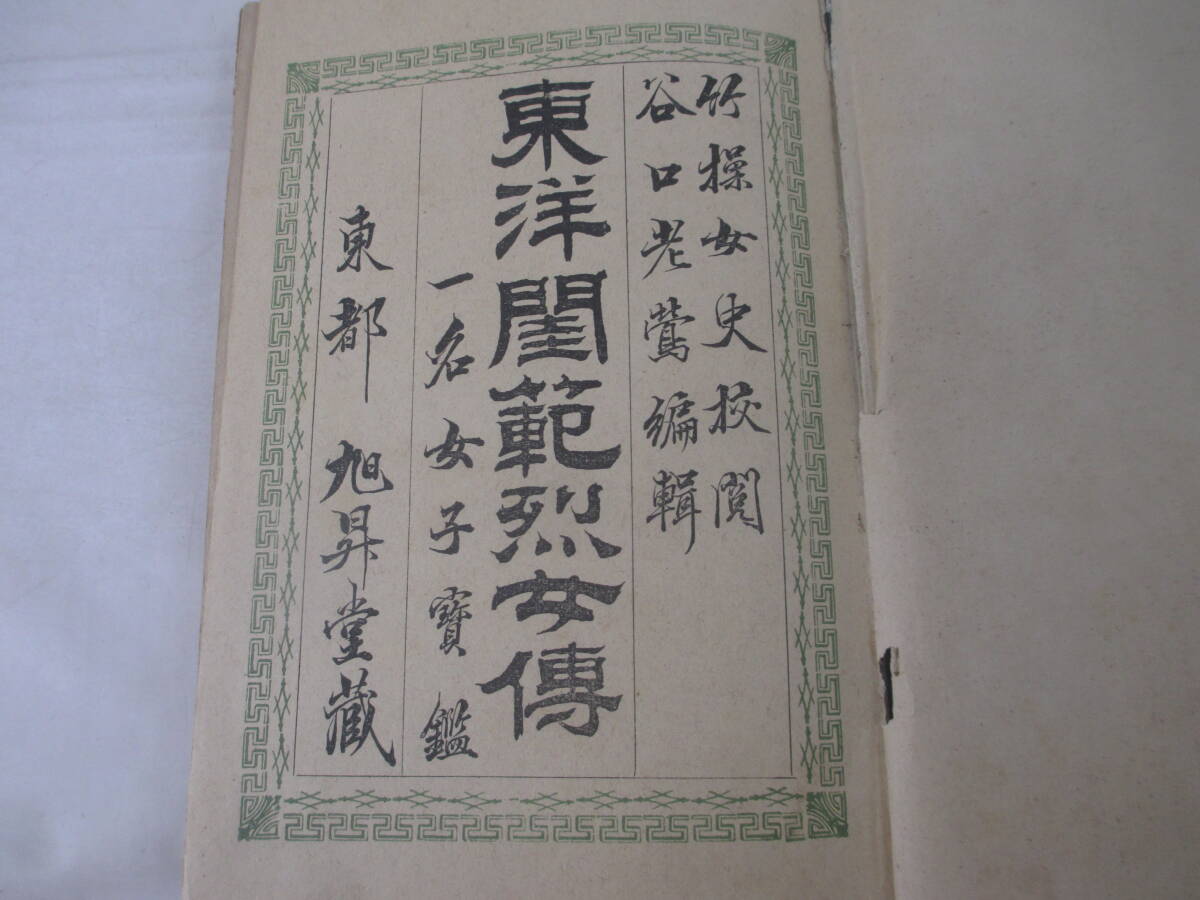 竹操女史校閲
谷口老鶯編輯
東洋閨範烈女傳
一名女子寶鑑
東都 旭昇堂藏